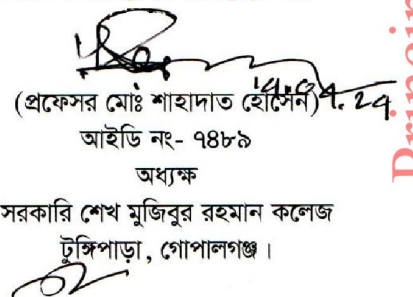 14.04.24
(প্রফেসর মোঃ শাহাদাত হোসেন)
আইডি নং- ৭৪৮৯
অধ্যক্ষ
সরকারি শেখ মুজিবুর রহমান কলেজ
টুঙ্গিপাড়া, গোপালগঞ্জ।